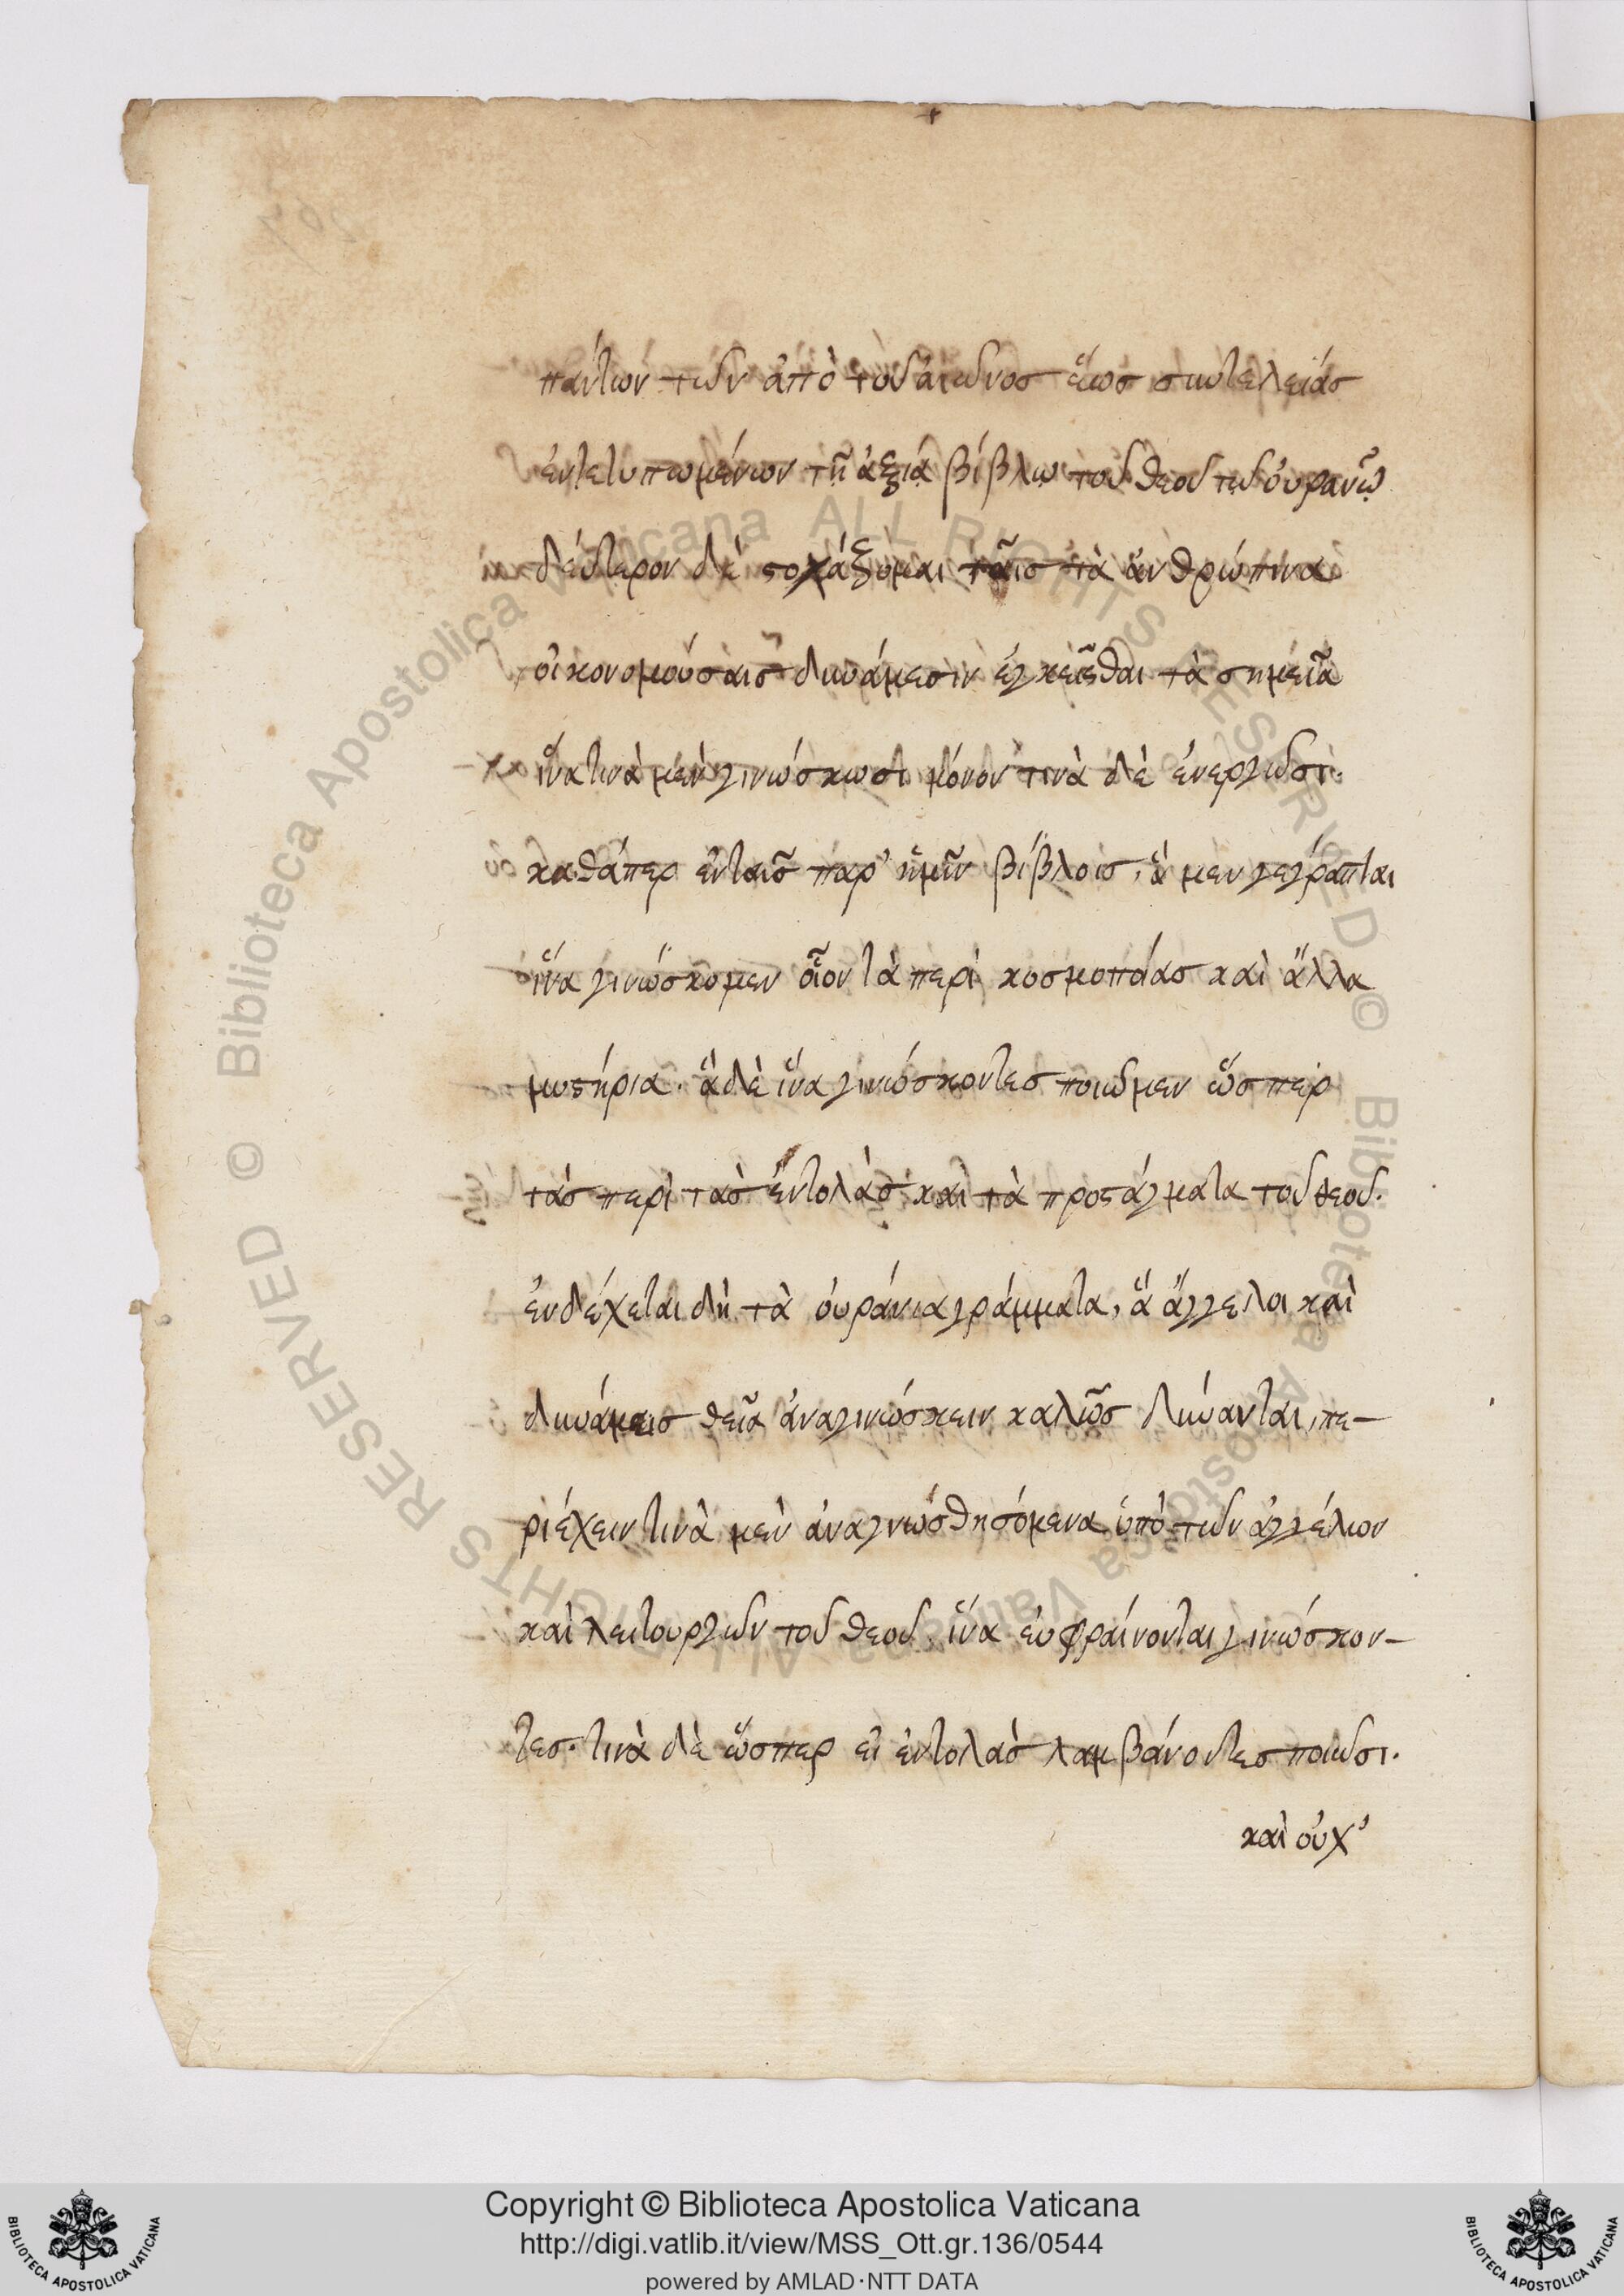 πάντων τῶν ἀπὸ τοῦ αἰῶνος ἕως συντελείας
ἐντετυπωμένων τῇ ἀξίᾳ βίβλῳ τοῦ θεοῦ τῷ οὐρανῷ
δεύτερον δὲ στοχάζομαι ταῖς τὰ ἀνθρώπινα
οἰκονομούσαις δυνάμεσιν ἐγκεῖσθαι τὰ σημεῖα
ἵνα τινὰ μὲν γινώσκωσι μόνον τινὰ δὲ ἐνεργῶσι.
καθάπερ ἐν ταῖς παρ' ἡμῖν βίβλοις, ἃ μὲν γέγραπται
ἵνα γινώσκομεν οἷον τὰ περὶ κοσμοποιίας καὶ ἄλλα
μυστήρια. ἃ δὲ ἵνα γινώσκοντες ποιῶμεν ὥσπερ
τὰς περὶ τὰς ἐντολὰς καὶ τὰ προστάγματα τοῦ θεοῦ.
ἐνδέχεται δὴ τὰ οὐράνια γράμματα, ἃ ἄγγελοι καὶ
δυνάμεις θεῖα ἀναγινώσκειν καλῶς δύνανται, πε-
ριέχειν τινὰ μὲν ἀναγνωσθησόμενα ὑπὸ τῶν ἀγγέλων
καὶ λειτουργῶν τοῦ θεοῦ. ἵνα εὐφραίνονται γινώσκον-
τες. τινὰ δὲ ὥσπερ εἰ ἐντολὰς λαμβάνοντες ποιῶσι.
καὶ οὐχ'
Copyright © Biblioteca Apostolica Vaticana
http://digi.vatlib.it/view/MSS_Ott.gr.136/0544
powered by AMLAD·NTT DATA